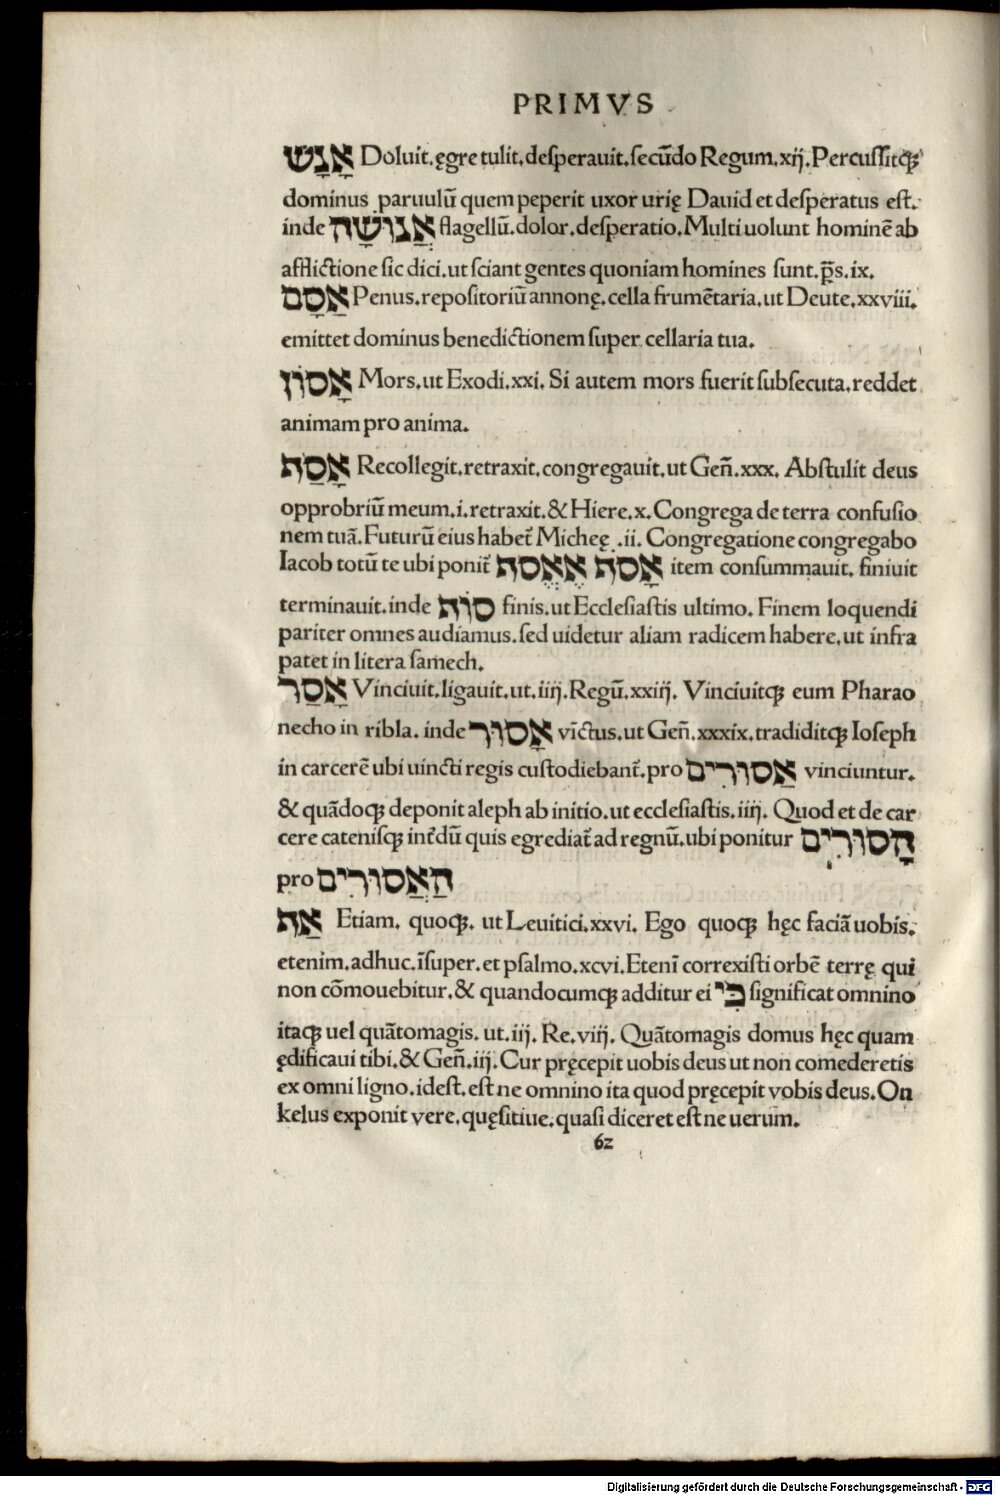 PRIMVS
אָנַשׁ Doluit.ęgre tulit.desperauit.secũdo Regum.xij.Percussitqꝫ
dominus paruulũ quem peperit uxor urię Dauid et desperatus est.
inde אֲנוּשָׁה flagellũ.dolor.desperatio.Multi uolunt hominẽ ab
afflictione sic dici.ut sciant gentes quoniam homines sunt.p̃s.ix.
אַסָם Penus.repositoriũ annonę.cella frumẽtaria.ut Deute.xxviii.
emittet dominus benedictionem super cellaria tua.
אָסוֹן Mors.ut Exodi.xxi. Si autem mors fuerit subsecuta.reddet
animam pro anima.
אָסַף Recollegit.retraxit.congregauit.ut Geñ.xxx. Abstulit deus
opprobriũ meum.i.retraxit.& Hiere.x.Congrega de terra confusio
nem tuã.Futurũ eius habet̃ Micheę .ii. Congregatione congregabo
Iacob totũ te ubi ponit̃ אָסֹף אֶאֱסֹף item consummauit. finiuit
terminauit.inde סוֹף finis.ut Ecclesiastis ultimo. Finem loquendi
pariter omnes audiamus.sed uidetur aliam radicem habere.ut infra
patet in litera samech.
אַסַר Vinciuit.ligauit.ut.iiij.Regũ.xxiij. Vinciuitqꝫ eum Pharao
necho in ribla. inde אָסוּר vĩctus.ut Geñ.xxxix.tradiditqꝫ Ioseph
in carcerẽ ubi uincti regis custodiebant̃.pro אַסוּרִים vinciuntur.
& quãdoqꝫ deponit aleph ab initio.ut ecclesiastis.iiij. Quod et de car
cere catenisqꝫ int̃dũ quis egrediat̃ ad regnũ.ubi ponitur הָסוּרִים
pro הַאֲסוּרִים
אַף Etiam. quoqꝫ. ut Leuitici.xxvi. Ego quoqꝫ hęc faciã uobis.
etenim.adhuc.ĩsuper.et psalmo.xcvi.Etenĩ correxisti orbẽ terrę qui
non cõmouebitur.& quandocumqꝫ additur ei כִּי significat omnino
itaqꝫ uel quãtomagis. ut.iij. Re.viij. Quãtomagis domus hęc quam
ędificaui tibi.& Geñ.iij. Cur pręcepit uobis deus ut non comederetis
ex omni ligno.idest.est ne omnino ita quod pręcepit vobis deus.On
kelus exponit vere.quęsitiue.quasi diceret est ne uerum.
62
Digitalisierung gefördert durch die Deutsche Forschungsgemeinschaft - DFG